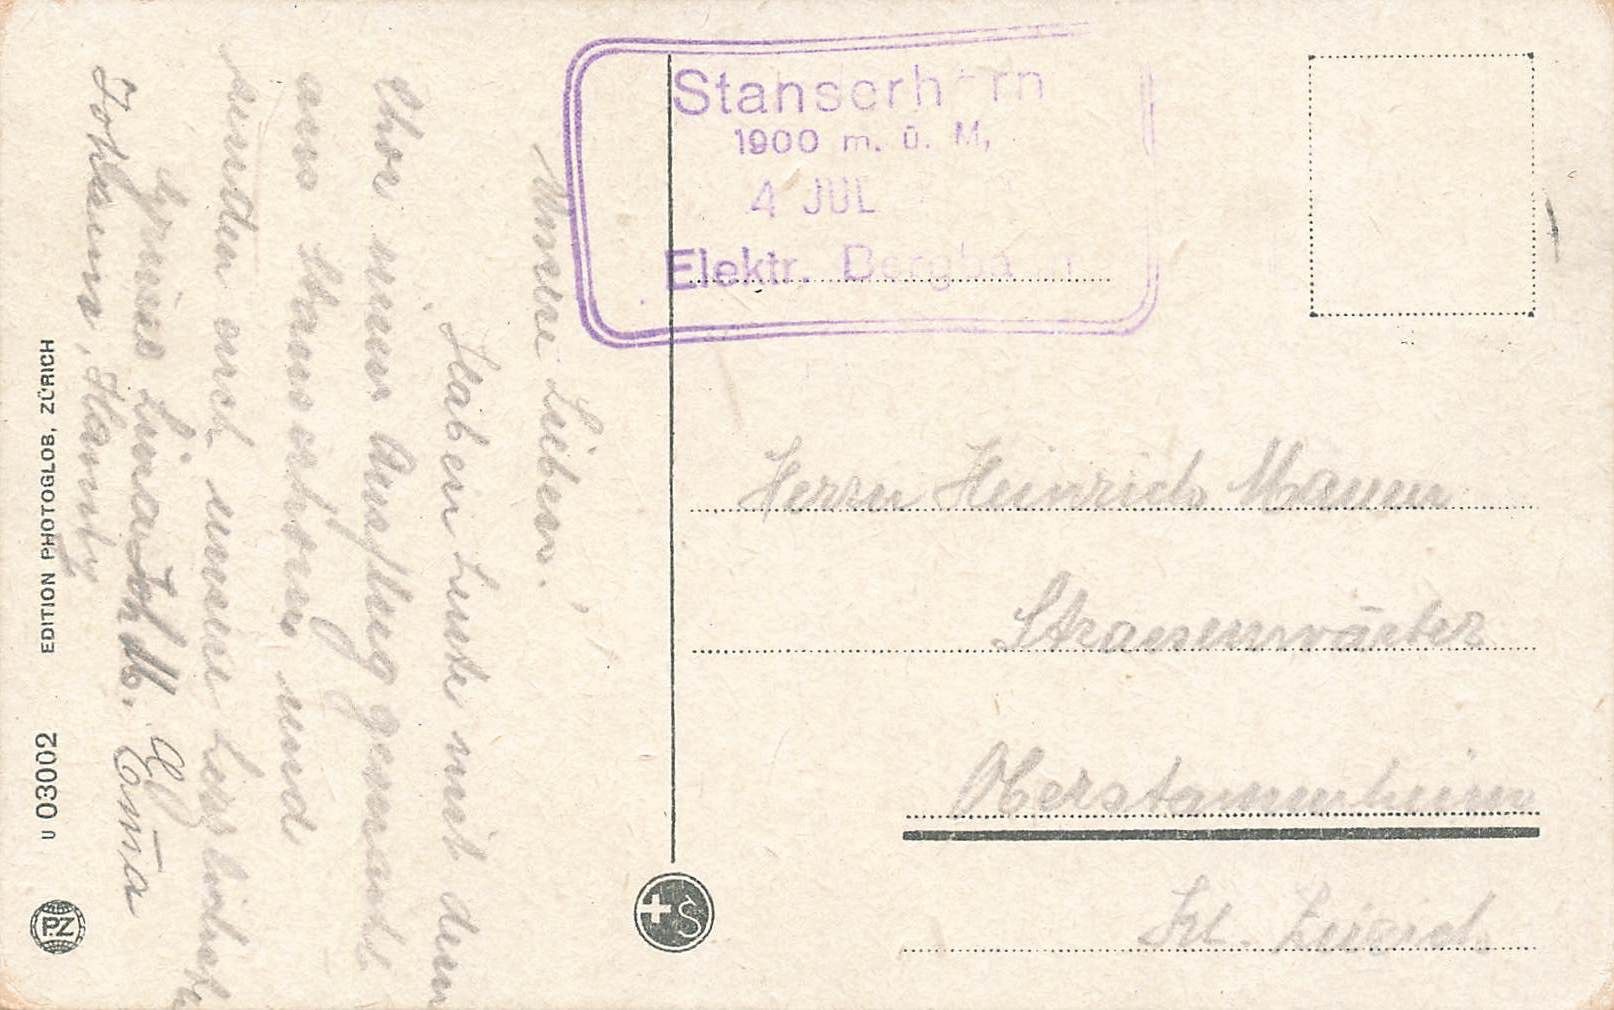 Stanserhorn
1900 m. ü. M.
4 JUL
Elektr. Bergbahn
Unsere Lieben!
Haben heute mit dem
Chor einen Ausflug gemacht
aus Stanserhorn und
senden euch unsere herzlichsten
Grüsse Lina
Emma
Johann, Hanny
Herrn Heinrich Mann
Strassenwärter
Oberstammheim
Kt. Zürich
EDITION PHOTOGLOB, ZÜRICH
U 03002
PZ
S